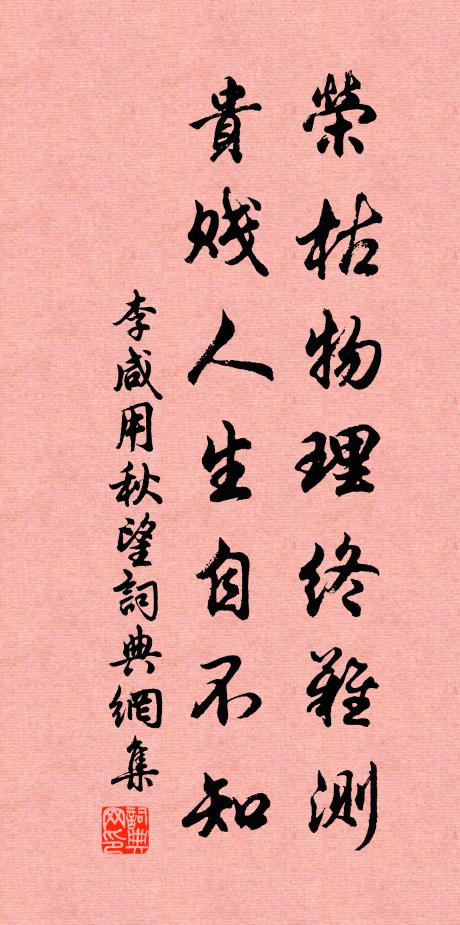 榮枯物理終難測
貴賤人生自不知
李咸用秋望詞典網集
詞典網印